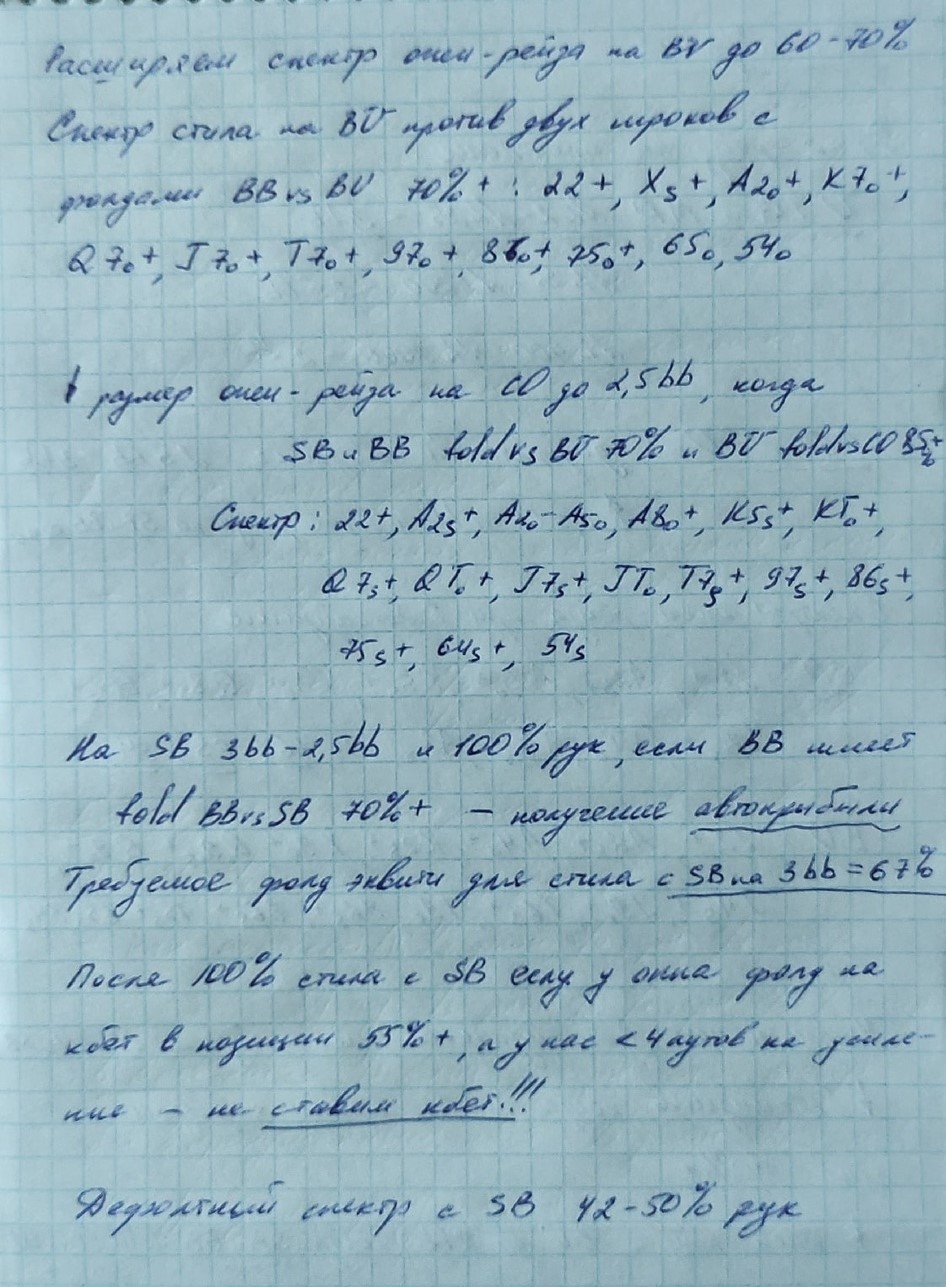 Расширяем спектр опен-рейза на BU до 60-70%
Спектр стила на BU против двух игроков с
фолдами BB vs BU 70%+ : 22+, Xs+, A2o+, K7o+,
Q7o+, J7o+, T7o+, 97o+, 86o+, 75o+, 65o, 54o
↑ размер опен-рейза на CO до 2,5bb, когда
SB и BB fold vs BU 70% и BU fold vs CO 85%+
Спектр: 22+, A2s+, A2o-A5o, A8o+, K5s+, KTo+,
Q7s+, QTo+, J7s+, JTo, T7s+, 97s+, 86s+,
75s+, 64s+, 54s
На SB 3bb-2,5bb и 100% рук, если BB имеет
fold BB vs SB 70%+ - получение автоприбыли
Требуемое фолд эквити для стила с SB на 3bb = 67%
После 100% стила с SB если у оппа фолд на
кбет в позиции 55%+, а у нас <4 аутов на усиле-
ние - не ставим кбет!!!
Дефолтный спектр с SB 42-50% рук